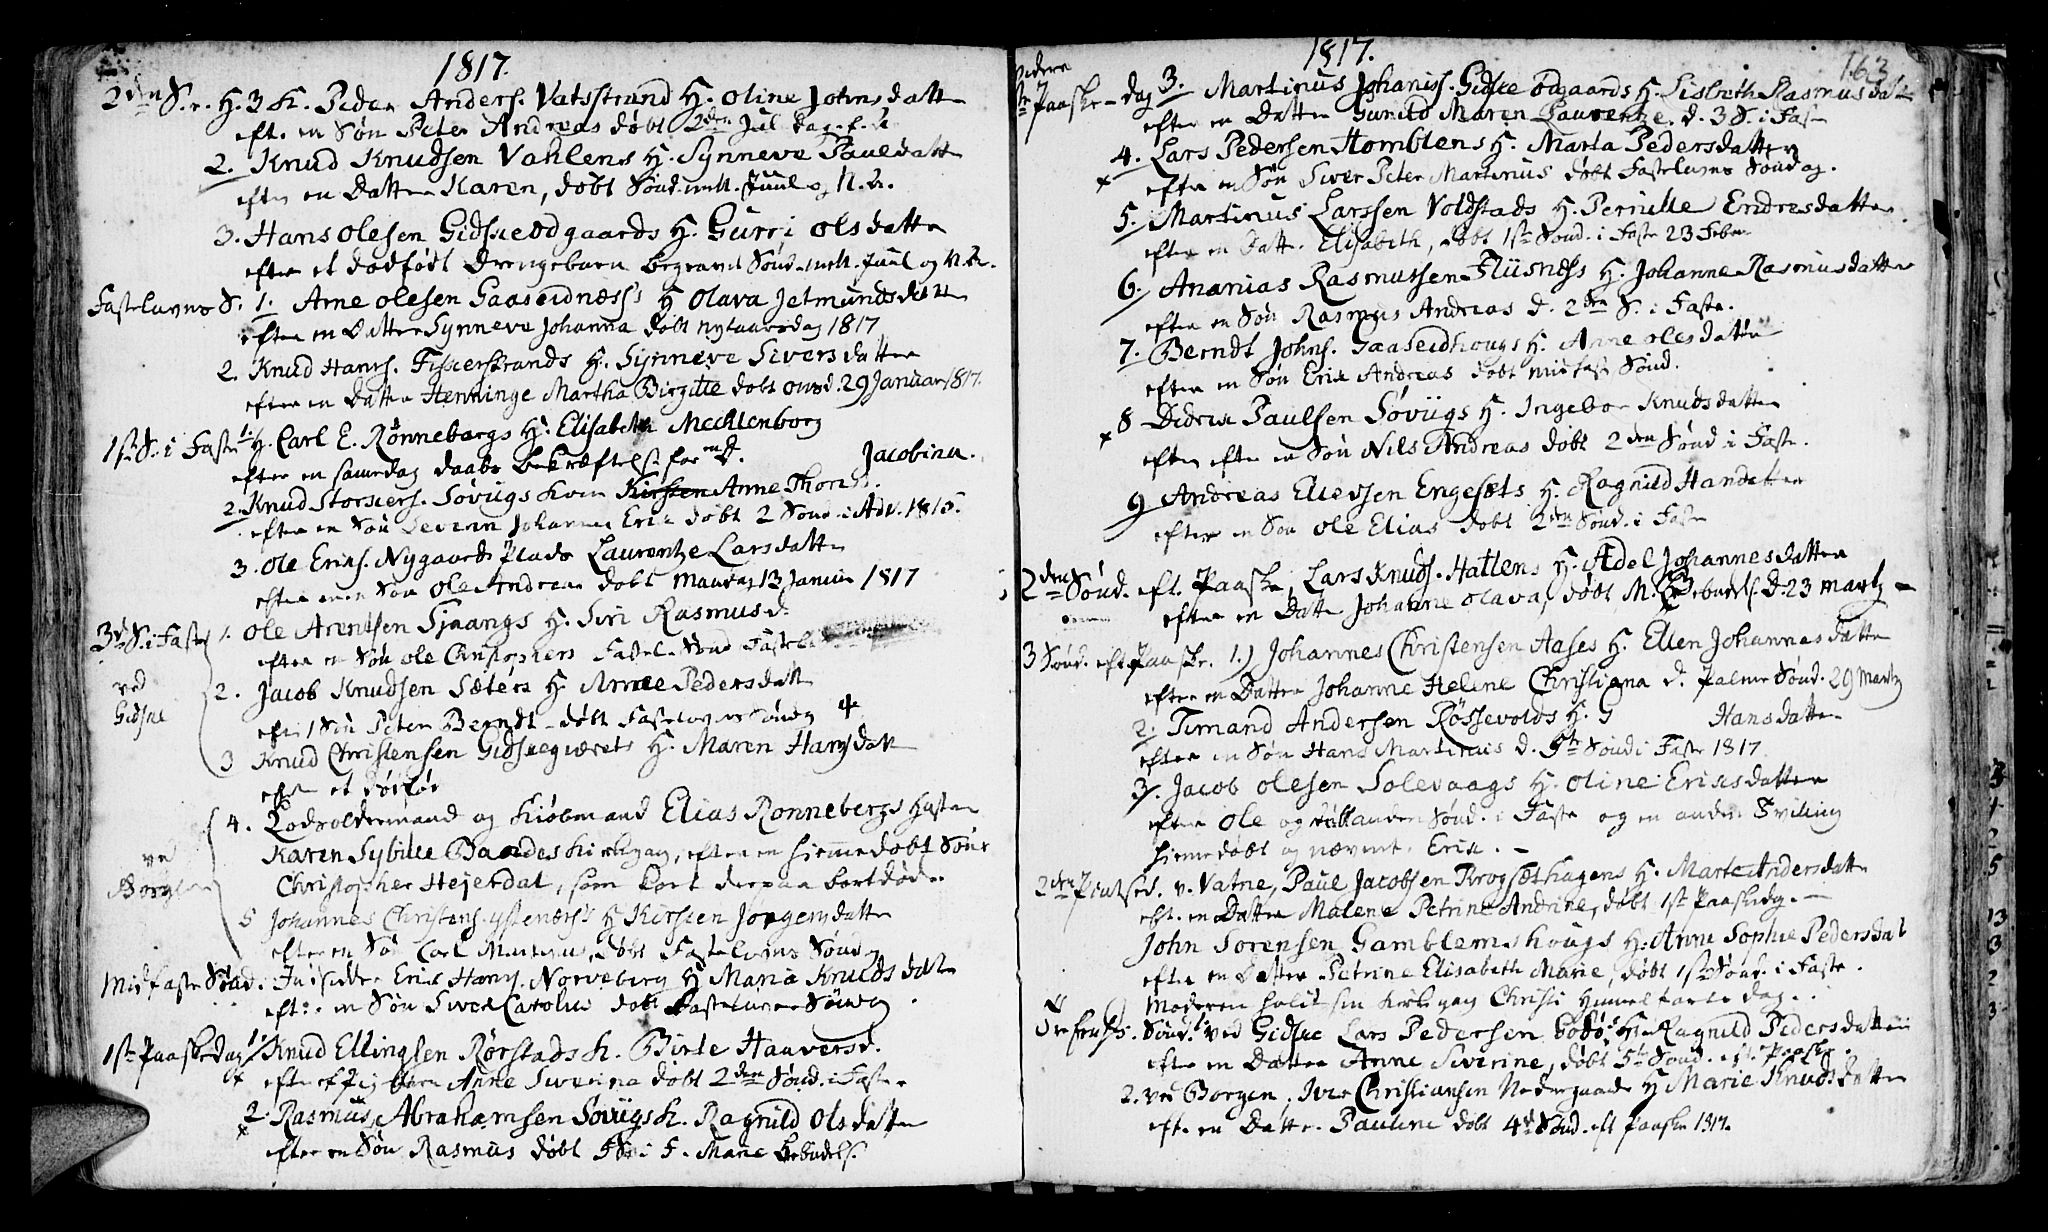 1817.
2den S. e. H. 3 K. Peder Anders. Vatsstrand H. Oline Johnsdatter
eft. en Søn Peter Andreas døbt 2den Jul Dag
2. Knud Knudsen Vahlens H. Synneve Paulsdatt
efter en Datter Karen, døbt Sønd. mell. Juul og N. Aar.
3. Hans Olesen Gidskeødgaards H. Gurri Olsdatter
efter et dødfødt Drengebarn begravet Sønd. mell. Juul og N. Aar.
Fastelavns S. 1. Arne Olesen Gaaseidnæss H. Olava Jetmundsdatter
efter en Datter Synneve Johanna døbt Nytaarsdag 1817
2. Knud Hans. Fiskerstrands H. Synneve Siversdatter
efter en Datter Henninge Martha Birgitte døbt onsd. 29 Januar 1817.
1ste S. i Faste 1. H. Carl E. Rønnebergs H. Elisabeth Mecklenborg
efter en samedag daabs bekræftelse for en D. Jacobina.
2. Knud Storskers. Søvügs Kone Kirsten Anne Thor
efter en Søn Severin Johannes Erik døbt 2 Sønd. i Adv. 1816.
3. Ole Eriks. Nygaards Plads Laurentze Larsdatter
efter en Søn Ole Andreas døbt Mandag 13 Januar 1817
3die S. i Faste 1. Ole Arentsen Sjaangs H. Siri Rasmusd.
efter en Søn Ole Christophers Fastel. Sønd
ved Gidske 2. Jacob Knudsen Sæters H. Anne Pedersdatt
eft. 1 Søn Peter Berndt døbt Fastelavns Søndag
3 Knud Christensen Gidskegiærets H. Maren Hansdatt
efter et dødfød
4. Lodsoldermand og Kiøbmand Elias Rønnebergs Hustru
ved Borgen Karen Sybille Baades Kirkegang, efter en hiemmedøbt Søn
Christopher Hejerdal, som kort derpaa bortdøde
5 Johannes Christens. Ystenæss H. Kirsten Jørgensdatter
efter en Søn Carl Martinus, døbt Fastelavns Søndag
Midfaste Sønd. Erik Hans. Norveberg H. Maria Knudsdatter
eft. en Søn Siver Carolus døbt Fastelavns Søndag.
1ste Paaskedag 1. Knud Ellingsen Rørstads K. Birte Haaversd.
efter Anne Siverina døbt 2den Sønd. i Faste
2. Rasmus Abrahamsen Søvügs K. Ragnild Olsdatter
efter en Søn Rasmus døbt Marie Bebudels.
1817.
163
videre
1ste Paaske-dag 3. Martinus Johanss. Gidske Ødgaards H. Lisbeth Rasmusdat
efter en Datter Gunild Maren Laurentze. d. 3 S. i Faste
4. Lars Pedersen Homblens H. Marta Pedersdatter
efter en Søn Siver Peter Martinus døbt Fastelavns Søndag.
5. Martinus Larssen Voldstads H. Pernille Endresdatter.
efter en Datter Elisabeth, døbt 1ste Sønd. i Faste 23 Febr.
6. Ananias Rasmussen Flüsness H. Johanne Rasmusdatter
efter en Søn Rasmus Andreas d. 2den S. i Faste.
7. Berndt Johns. Gaaseidhougs H. Anne Olesdatter
efter en Søn Erik Andreas døbt Midfaste Sønd.
8 Didrik Paulsen Søvügs H. Ingebor Knudsdatter
efter efter en Søn Nils Andreas døbt 2den Sønd i Faste.
9 Andreas Ellevsen Engesets H. Ragnild Hansdatter
efter en Søn Ole Elias døbt 2den Sønd. i Faste
2den Sønd. eft. Paaske, Lars Knuds. Hatlens H. Adel Johannesdatter
efter en Datter Johanne Olava, døbt M. Bebudels. D. 23 Martz
3 Sønd. eft. Paaske. 1.) Johannes Christensen Aases H. Ellen Johannesdatter
efter en Datter Johanne Heline Christiana d. Palme Sønd. 29 Martz
2. Timand Andersen Røssevolds H. G Hansdatter
efter en Søn Hans Martinus d. 5te Sønd i Faste 1817
3. Jacob Olesen Solevaags H. Oline Eriksdatter
efter Ole og døbt anden Sønd. i Faste og en anden Tvilling
hiemedøbt og nævnt Erik. -
2den Pintsed. v. Vatne, Paul Jacobsen Krogsæthagens H. Marte Andersdatter
eft. en Datter Malene Petrine Andrine, døbt 1ste Paaskedag. -
John Sørensen Gamblemshougs H. Anne Sophie Pedersdat
efter en Datter Petrine Elisabeth Marie, døbt 1ste Sønd. i Faste.
Moderen holdt sin Kirkegang Christi Himmelfarts dag.
Trefoldigh. Sønd. 1. ved Gidske Lars Pedersen Godø H. Ragnild Pedersdatter
efter en Datter Anne Siverine, døbt 5te Sønd. eft. Paaske.
2. ved Borgen, Iver Christiansen Nedregaards H. Marie Knudsdatter
eft. en Datter Pauline døbt 4de Sønd. eft Paaske 1817.